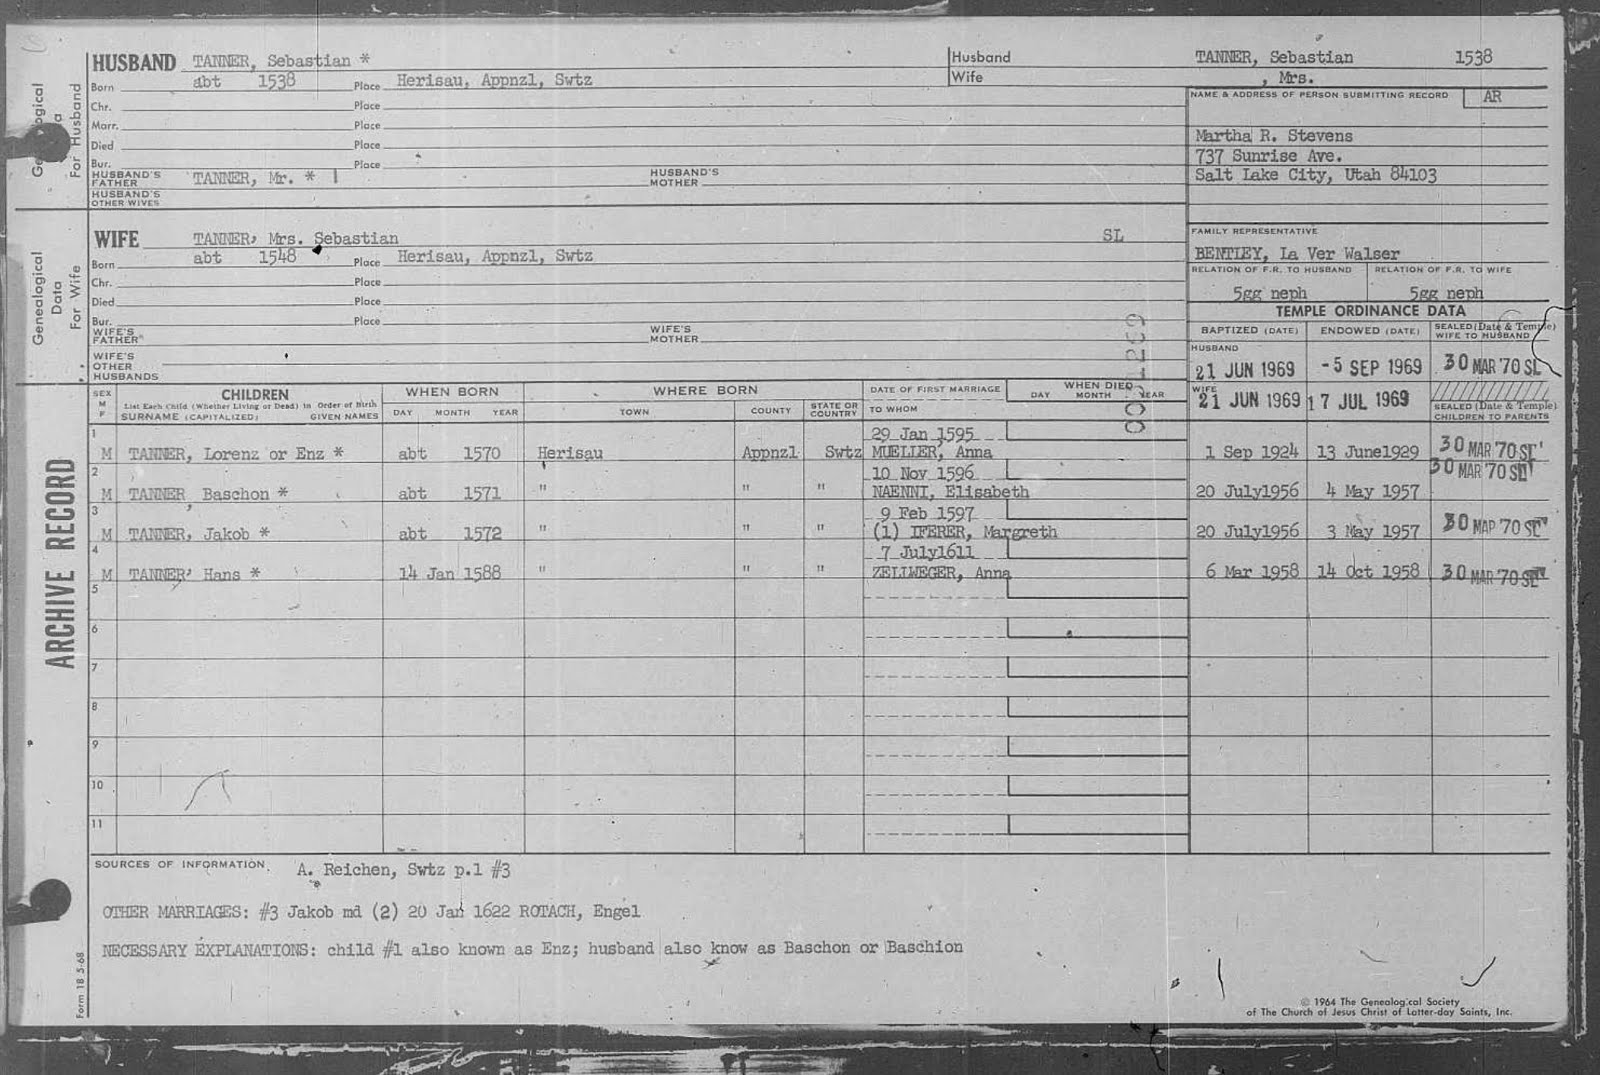 HUSBAND TANNER, Sebastian *
Born abt 1538 Place Herisau, Appnzl, Swtz
Chr. Place
Marr. Place
Died Place
Bur. Place
HUSBAND'S FATHER TANNER, Mr. * 1 HUSBAND'S MOTHER
HUSBAND'S OTHER WIVES
Husband TANNER, Sebastian 1538
Wife , Mrs.
NAME & ADDRESS OF PERSON SUBMITTING RECORD AR
Martha R. Stevens
737 Sunrise Ave.
Salt Lake City, Utah 84103
For Husband
WIFE TANNER, Mrs. Sebastian SL
Born abt 1548 Place Herisau, Appnzl, Swtz
Chr. Place
Died Place
Bur. Place
WIFE'S FATHER WIFE'S MOTHER
WIFE'S OTHER HUSBANDS
Genealogical Data For Wife
FAMILY REPRESENTATIVE
BENTLEY, La Ver Walser
RELATION OF F.R. TO HUSBAND RELATION OF F.R. TO WIFE
5gg neph 5gg neph
TEMPLE ORDINANCE DATA
BAPTIZED (DATE) ENDOWED (DATE) SEALED (Date & Temple) WIFE TO HUSBAND
HUSBAND
21 JUN 1969 -5 SEP 1969 30 MAR '70 SL
WIFE
21 JUN 1969 17 JUL 1969
SEALED (Date & Temple) CHILDREN TO PARENTS
SEX M F CHILDREN WHEN BORN WHERE BORN DATE OF FIRST MARRIAGE WHEN DIED
List Each Child (Whether Living or Dead) in Order of Birth DAY MONTH YEAR
SURNAME (CAPITALIZED) GIVEN NAMES DAY MONTH YEAR TOWN COUNTY STATE OR COUNTRY TO WHOM
1 29 Jan 1595
M TANNER, Lorenz or Enz * abt 1570 Herisau Appnzl Swtz MUELLER, Anna 1 Sep 1924 13 June1929 30 MAR '70 SL
2 10 Nov 1596 30 MAR '70 SL
M TANNER Baschon * abt 1571 " " " NAENNI, Elisabeth 20 July1956 4 May 1957
3 9 Feb 1597
M TANNER, Jakob * abt 1572 " " " (1) IFERER, Margreth 20 July1956 3 May 1957 30 MAR '70 SL
4 7 July1611
M TANNER, Hans * 14 Jan 1588 " " " ZELLWEGER, Anna 6 Mar 1958 14 Oct 1958 30 MAR '70 SL
5
6
7
8
9
10
11
ARCHIVE RECORD
SOURCES OF INFORMATION. A. Reichen, Swtz p.1 #3
OTHER MARRIAGES: #3 Jakob md (2) 20 Jan 1622 ROTACH, Engel
NECESSARY EXPLANATIONS: child #1 also known as Enz; husband also know as Baschon or Baschion
Form 18 5-68
© 1964 The Genealogical Society
of The Church of Jesus Christ of Latter-day Saints, Inc.